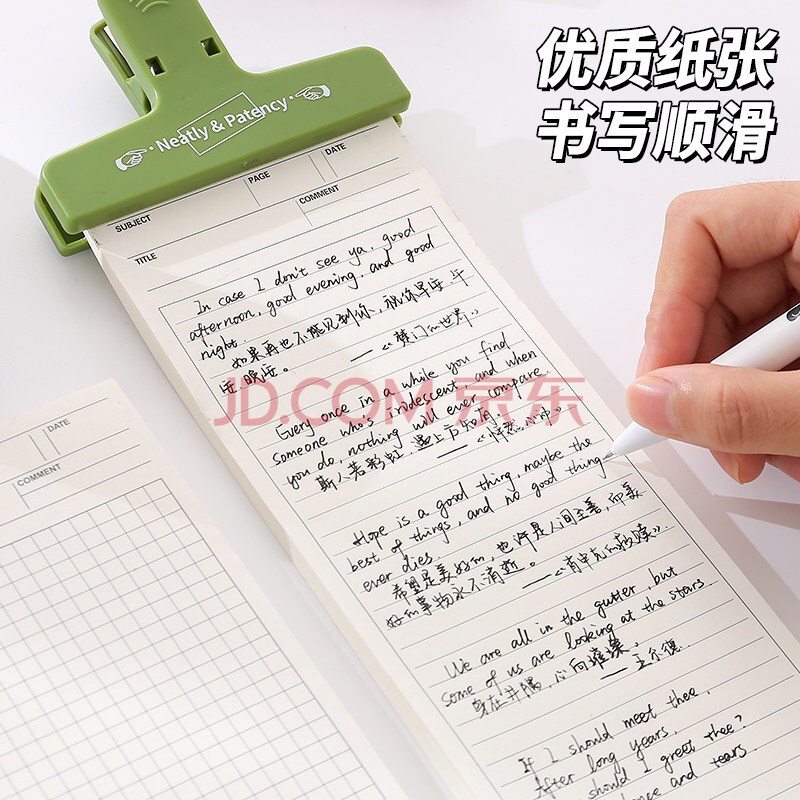 优质纸张
书写顺滑
Neatly & Patency
SUBJECT
PAGE
DATE
TITLE
COMMENT
In case I don't see ya, good
afternoon, good evening, and good
night.
如果再也不能见到你,祝你早安,午
安,晚安。 ——《楚门的世界》
Every once in a while you find
someone who's iridescent, and when
you do, nothing will ever compare.
斯人若彩虹,遇上方知有
Hope is a good thing, maybe the
best of things, and no good thing
ever dies.
希望是美好的,也许是人间至善,而美
好的事物永不消逝。 ——《肖申克的救赎》
We are all in the gutter, but
some of us are looking at the stars
身在井隅,心向璀璨。
——王尔德
If I should meet thee,
After long years,
should I greet thee?
and tears.
DATE
COMMENT
JD.COM 京东